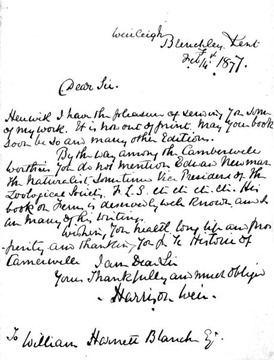 Weirleigh
Brenchley, Kent
Feb 14th 1877.
Dear Sir.
Herewith I have the pleasure of sending you some
of my work. It is now out of print. May your book
soon be so and many other Editions.
By the way among the Camberwell
worthies you do not mention Edward Newman
the Naturalist, sometime Vice President of the
Zoological Society, F.L.S. etc etc etc etc. His
book on Ferns is deservedly well known and
an many of his writings.
Wishing you health, long life and pros-
perity and thanking you for Ye Historie of
Camerwelle
I am Dear Sir
Yours Thankfully and much obliged
Harrison Weir.
To William Harnett Blanch Esq.